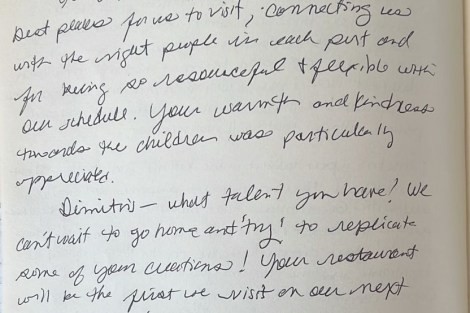 best places for us to visit, connecting us
with the right people in each port and
for being so resourceful + flexible with
our schedule. Your warmth and kindness
towards the children was particularly
appreciated.
Dimitris - what talent you have! We
can't wait to go home and 'try' to replicate
some of your creations! Your restaurant
will be the first we visit on our next